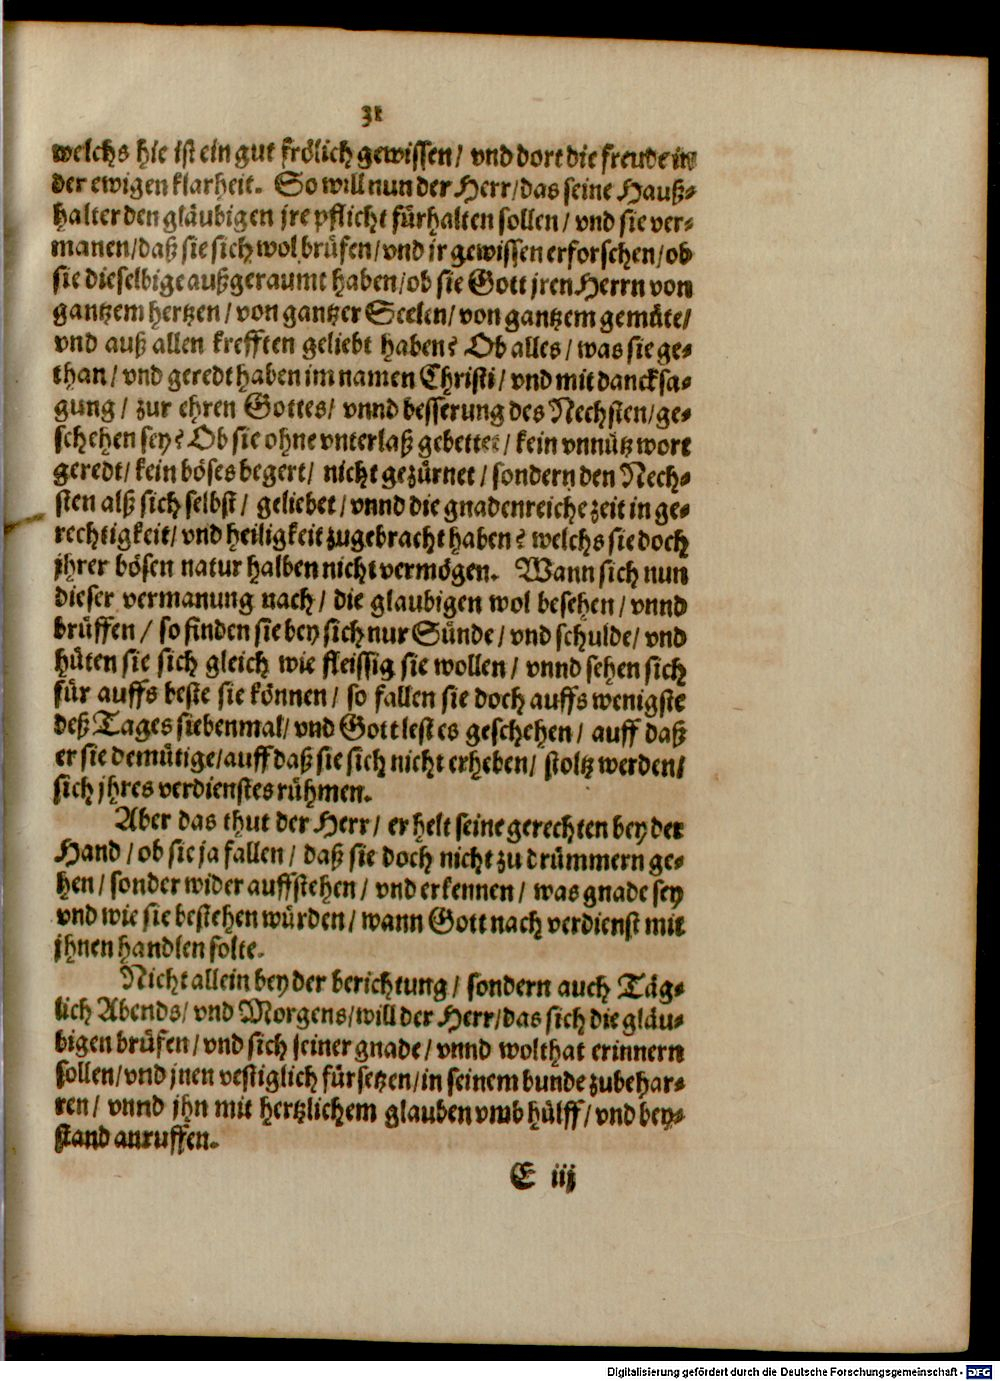 31
welchs hie ist ein gut frölich gewissen/ vnd dort die freude in
der ewigen klarheit. So will nun der Herr/das seine Hauß-
halter den gläubigen jre pflicht fürhalten sollen/ vnd sie ver-
manen/daß sie sich wol brüfen/vnd jr gewissen erforschen/ob
sie dieselbige außgeraumt haben/ob sie Gott jren Herrn von
gantzem hertzen/ von gantzer Seelen/ von gantzem gemüte/
vnd auß allen krefften geliebt haben? Ob alles/ was sie ge-
than/ vnd geredt haben im namen Christi/ vnd mit dancksa-
gung/ zur ehren Gottes/ vnnd besserung des Nechsten/ge-
schehen sey? Ob sie ohne vnterlaß gebettet/ kein vnnütz wort
geredt/ kein böses begert/ nicht gezürnet/ sondern den Nech-
sten alß sich selbst/ geliebet/ vnnd die gnadenreiche zeit in ge-
rechtigkeit/ vnd heiligkeit zugebracht haben? welchs sie doch
jhrer bösen natur halben nicht vermögen. Wann sich nun
dieser vermanung nach/ die glaubigen wol besehen/ vnnd
brüffen/ so finden sie bey sich nur Sünde/ vnd schulde/ vnd
hüten sie sich gleich wie fleissig sie wollen/ vnnd sehen sich
für auffs beste sie können/ so fallen sie doch auffs wenigste
deß Tages siebenmal/ vnd Gott lest es geschehen/ auff daß
er sie demütige/auff daß sie sich nicht erheben/ stoltz werden/
sich jhres verdienstes rühmen.
Aber das thut der Herr/ er helt seine gerechten bey der
Hand/ ob sie ja fallen/ daß sie doch nicht zu drümmern ge-
hen/ sonder wider auffstehen/ vnd erkennen/ was gnade sey
vnd wie sie bestehen würden/ wann Gott nach verdienst mit
jhnen handlen solte.
Nicht allein bey der berichtung/ sondern auch Täg-
lich Abends/ vnd Morgens/will der Herr/das sich die gläu-
bigen brüfen/ vnd sich seiner gnade/ vnnd wolthat erinnern
sollen/vnd jnen vestiglich fürsetzen/in seinem bunde zubehar-
ren/ vnnd jhn mit hertzlichem glauben vmb hülff/ vnd bey-
stand anruffen.
E iij
Digitalisierung gefördert durch die Deutsche Forschungsgemeinschaft - DFG